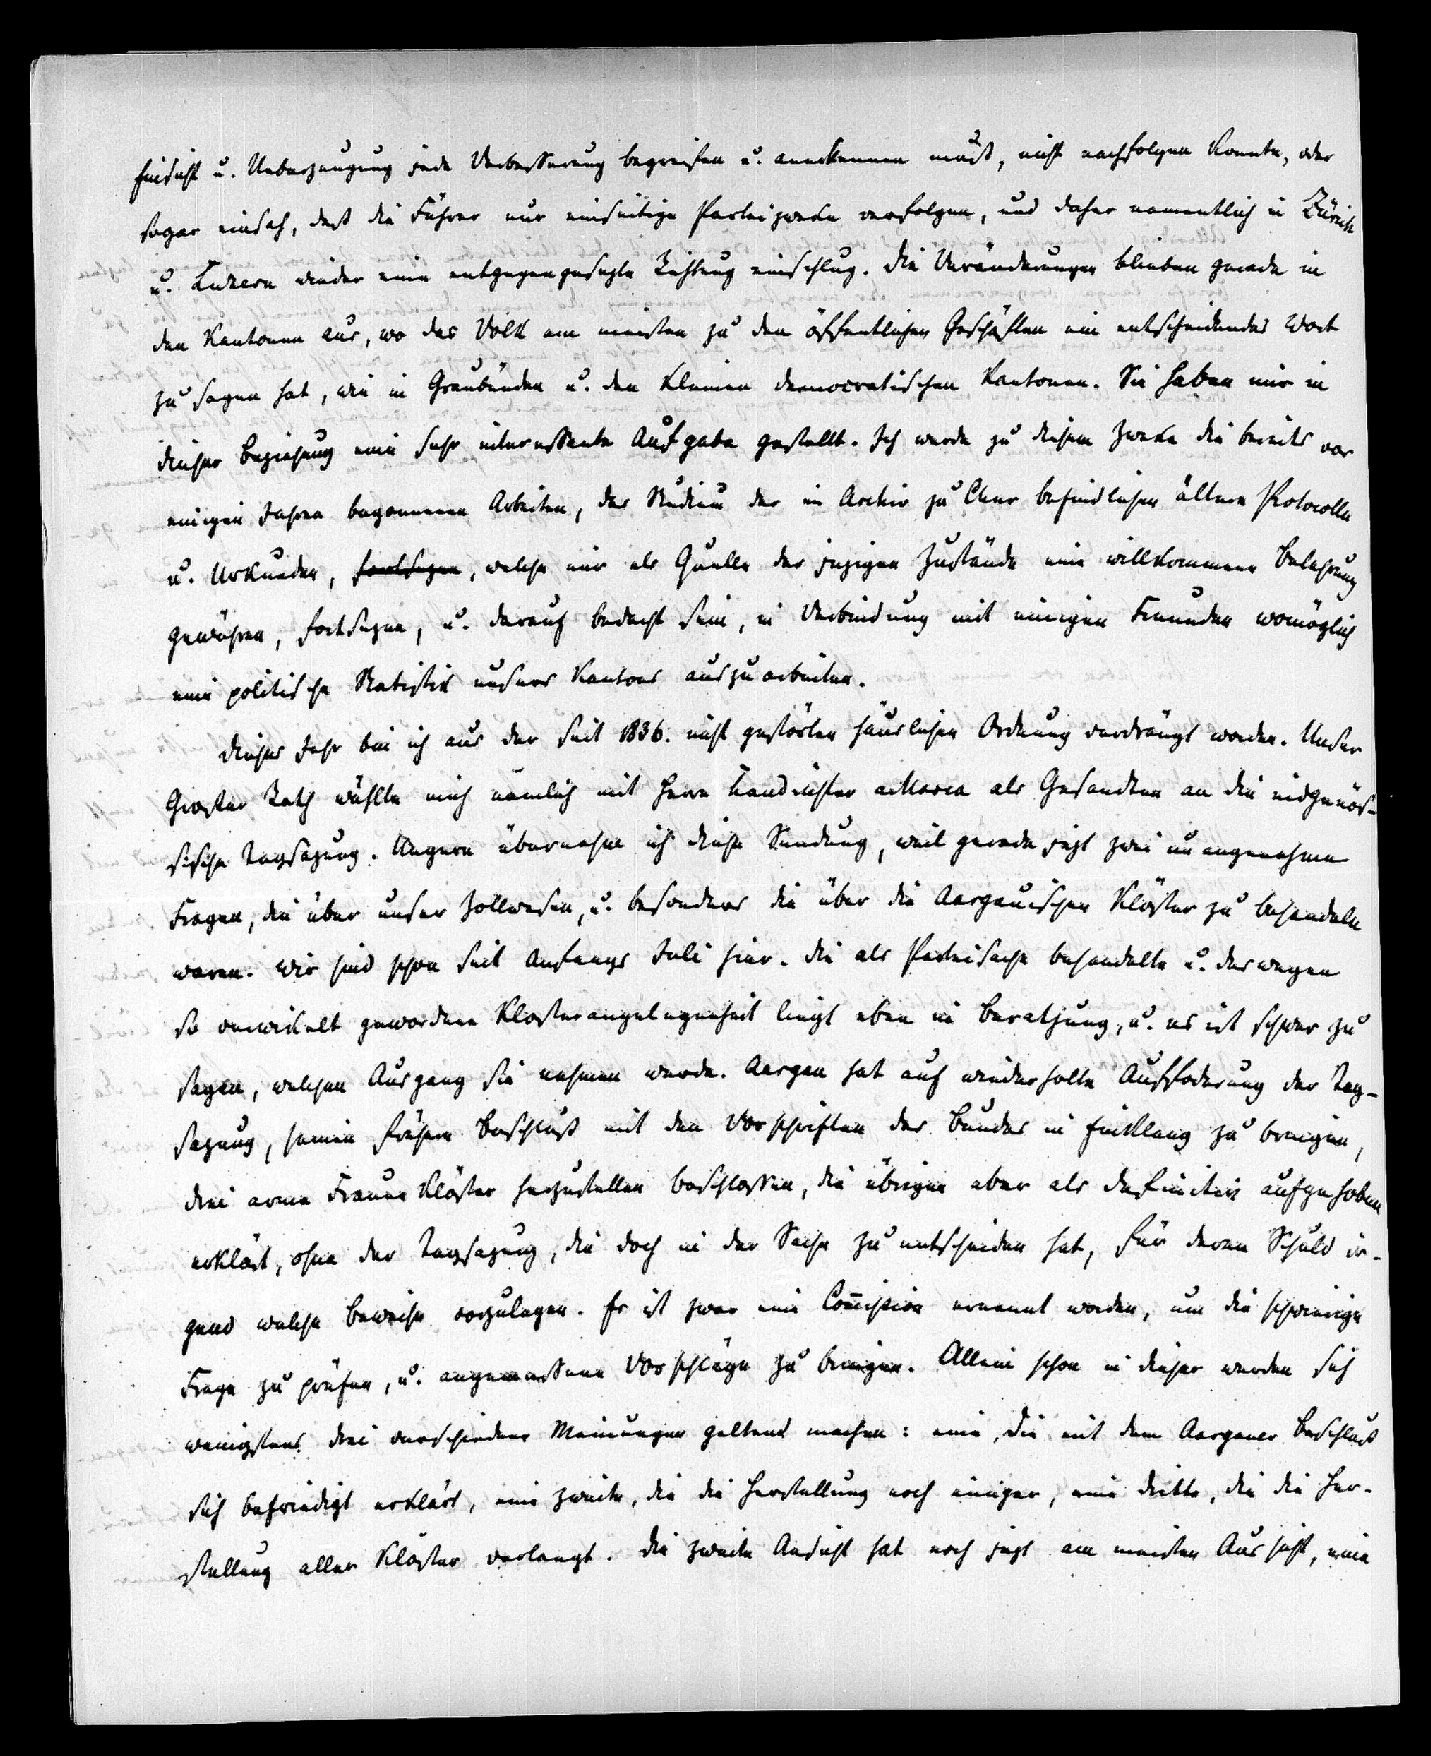 Einsicht u. Ueberzeugung jede Verbesserung begreifen u. anerkennen muß, nicht nachfolgen konnte, oder
sogar einsah, daß die Führer nur einseitige Parteizwecke verfolgen, und daher namentlich in Zürich
u. Luzern wieder eine entgegengesezte Richtung einschlug. Die Veränderungen blieben gerade in
den Kantonen aus, wo das Volk am meisten zu den öffentlichen Geschäften ein entscheidendes Wort
zu sagen hat, wie in Graubünden u. den kleinen democratischen Kantonen. Sie haben mir in
dieser Beziehung eine sehr interessante Aufgabe gestellt. Ich werde zu diesem Zweke die bereits vor
einigen Jahren begonnenen Arbeiten, das Studium der im Archiv zu Chur befindlichen ältern Protocolle
u. Urkunden, fortsezen, welche mir als Quelle der jezigen Zustände eine willkommene Belehrung
gewähren, fortsezen, u. darauf bedacht sein, in Verbindung mit einigen Freunden womöglich
eine politische Statistik unsers Kantons auszuarbeiten.
Dieses Jahr bin ich aus der seit 1836. nicht gestörten häuslichen Ordnung verdrängt worden. Unser
Großer Rath wählte mich nämlich mit Herrn Landrichter a Marca als Gesandten an die eidgenös-
sische Tagsazung. Ungern übernahm ich diese Sendung, weil gerade jezt zwei unangenehme
Fragen, die über unser Zollwesen, u. besonders die über die Aargauischen Klöster zu behandeln
waren. Wir sind schon seit Anfangs Juli hier. Die als Parteisache behandelte u. deswegen
so verwikelt gewordene Klosterangelegenheit liegt eben in Berathung, u. es ist schwer zu
sagen, welchen Ausgang sie nehmen werde. Aargau hat auf wiederholte Aufforderung der Tag-
sazung, seinen frühern Beschluß mit den Vorschriften des Bundes in Einklang zu bringen,
drei arme Frauenklöster herzustellen beschlossen, die übrigen aber als definitiv aufgehoben
erklärt, ohne der Tagsazung, die doch in der Sache zu entscheiden hat, für deren Schuld ir-
gend welche Beweise vorzulegen. Es ist zwar eine Com̅ission ernannt worden, um die schwierige
Frage zu prüfen, u. angemessene Vorschläge zu bringen. Allein schon in dieser werden sich
wenigstens drei verschiedene Meinungen geltend machen: eine, die mit dem Aargauer Beschluß
sich befriedigt erklärt, eine zweite, die die Herstellung noch einiger, eine dritte, die die Her-
stellung aller Klöster verlangt. Die zweite Ansicht hat noch jezt am meisten Aussicht, eine